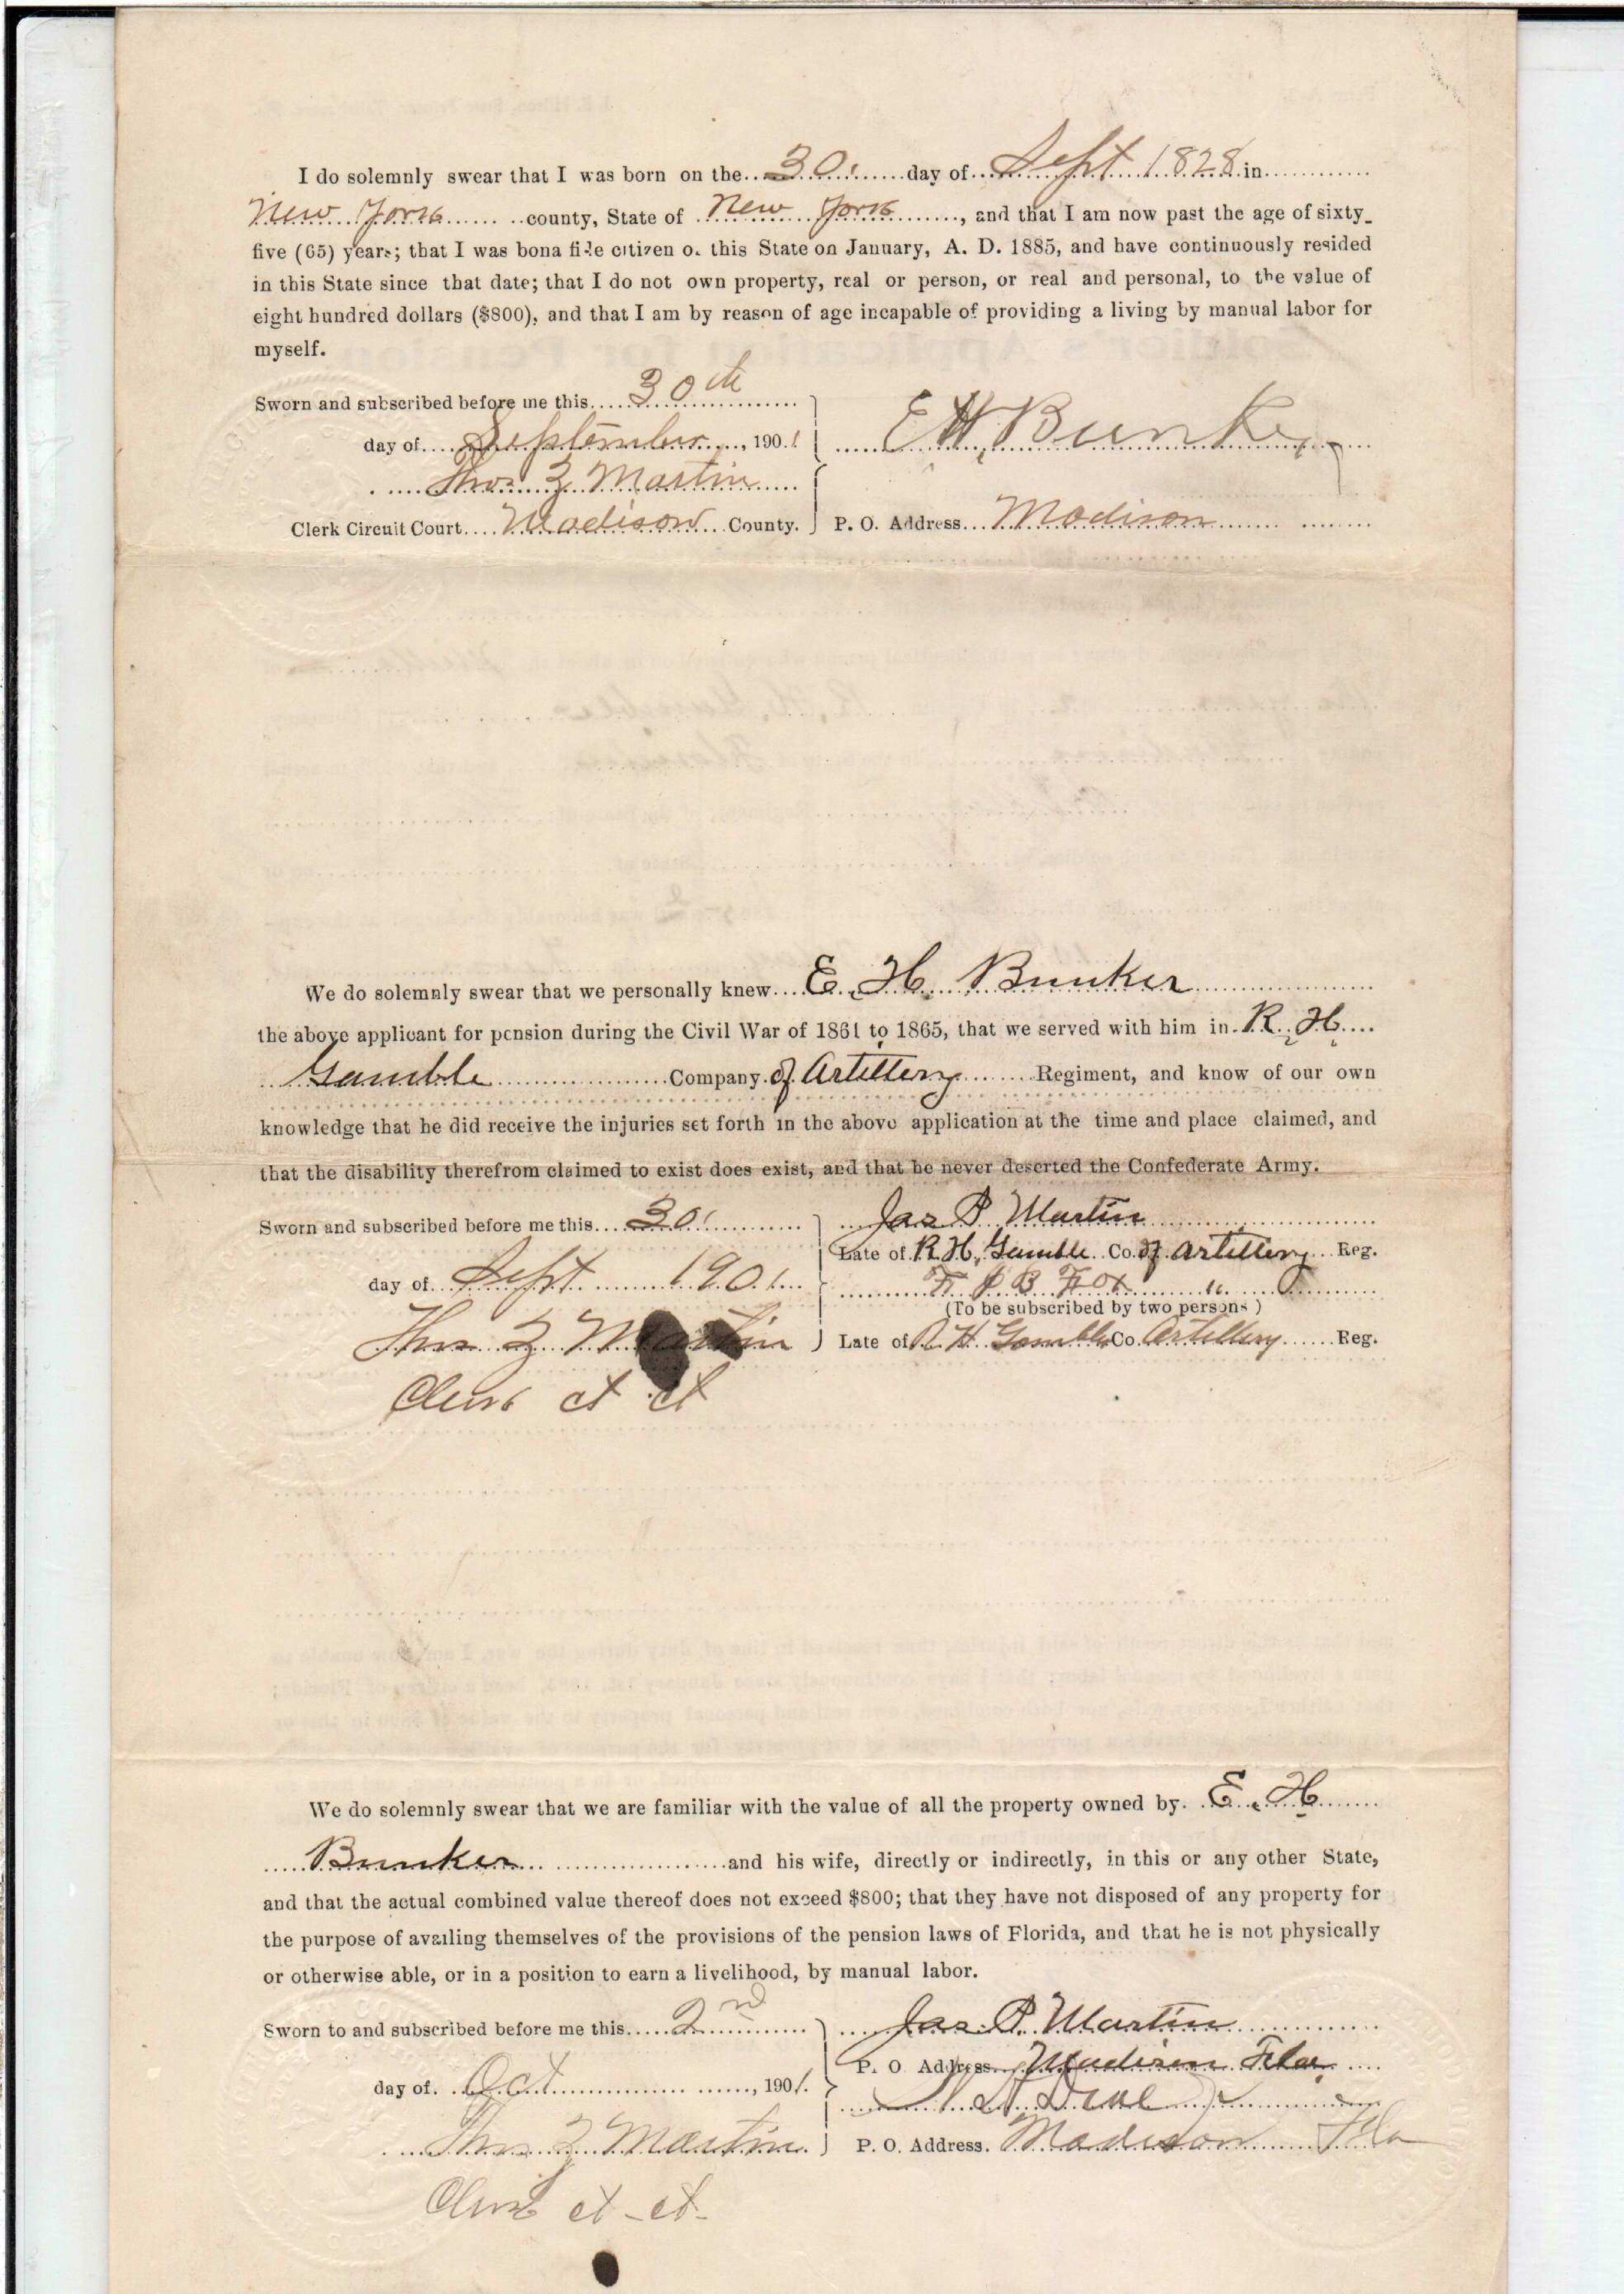 I do solemnly swear that I was born on the 30 day of Sept 1828 in
New York county, State of New York, and that I am now past the age of sixty
five (65) years; that I was bona fide citizen of this State on January, A. D. 1885, and have continuously resided
in this State since that date; that I do not own property, real or person, or real and personal, to the value of
eight hundred dollars ($800), and that I am by reason of age incapable of providing a living by manual labor for
myself.
Sworn and subscribed before me this 30th
day of September, 1901
E H Bunker
Thos Z Martin
Clerk Circuit Court Madison County.
P. O. Address Madison
We do solemnly swear that we personally knew E. H. Bunker
the above applicant for pension during the Civil War of 1861 to 1865, that we served with him in R. H.
Gamble Company of Artillery Regiment, and know of our own
knowledge that he did receive the injuries set forth in the above application at the time and place claimed, and
that the disability therefrom claimed to exist does exist, and that he never deserted the Confederate Army.
Sworn and subscribed before me this 30
Jas P Martin
Late of R. H. Gamble Co. of Artillery Reg.
day of Sept 1901
B Fox "
(To be subscribed by two persons)
Thos Z Martin
Late of R H Gamble Co. Artillery Reg.
Clerk ct ct
We do solemnly swear that we are familiar with the value of all the property owned by E. H
Bunker and his wife, directly or indirectly, in this or any other State,
and that the actual combined value thereof does not exceed $800; that they have not disposed of any property for
the purpose of availing themselves of the provisions of the pension laws of Florida, and that he is not physically
or otherwise able, or in a position to earn a livelihood, by manual labor.
Sworn to and subscribed before me this 2nd
Jas P. Martin
P. O Address Madison Fla
day of Oct, 1901.
Thos Z Martin
P. O. Address. Madison Fla
Clerk ct - ct -